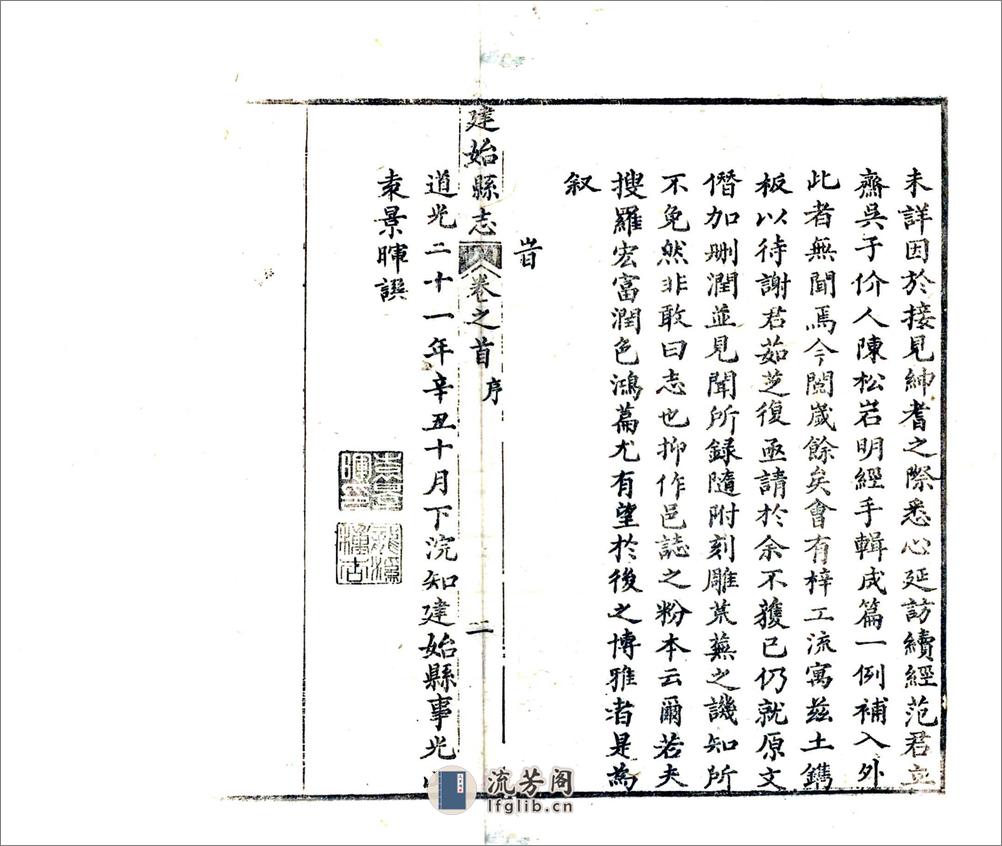 未詳因於接見紳耆之際悉心延訪續經范君立
齋吳子价人陳松岩明經手輯成篇一例補入外
此者無聞焉今閱歲餘矣會有梓工流寓兹土鐫
板以待謝君茹芝復亟請於余不獲已仍就原文
僭加刪潤並見聞所録隨附刻雕荒蕪之譏知所
不免然非敢曰志也抑作邑誌之粉本云爾若夫
搜羅宏富潤色鴻篇尤有望於後之博雅者是為
叙
旹
建始縣志 卷之首 序 二
道光二十一年辛丑十月下浣知建始縣事光山
袁景暉譔
袁景暉印
流芳阁
lfglib.cn